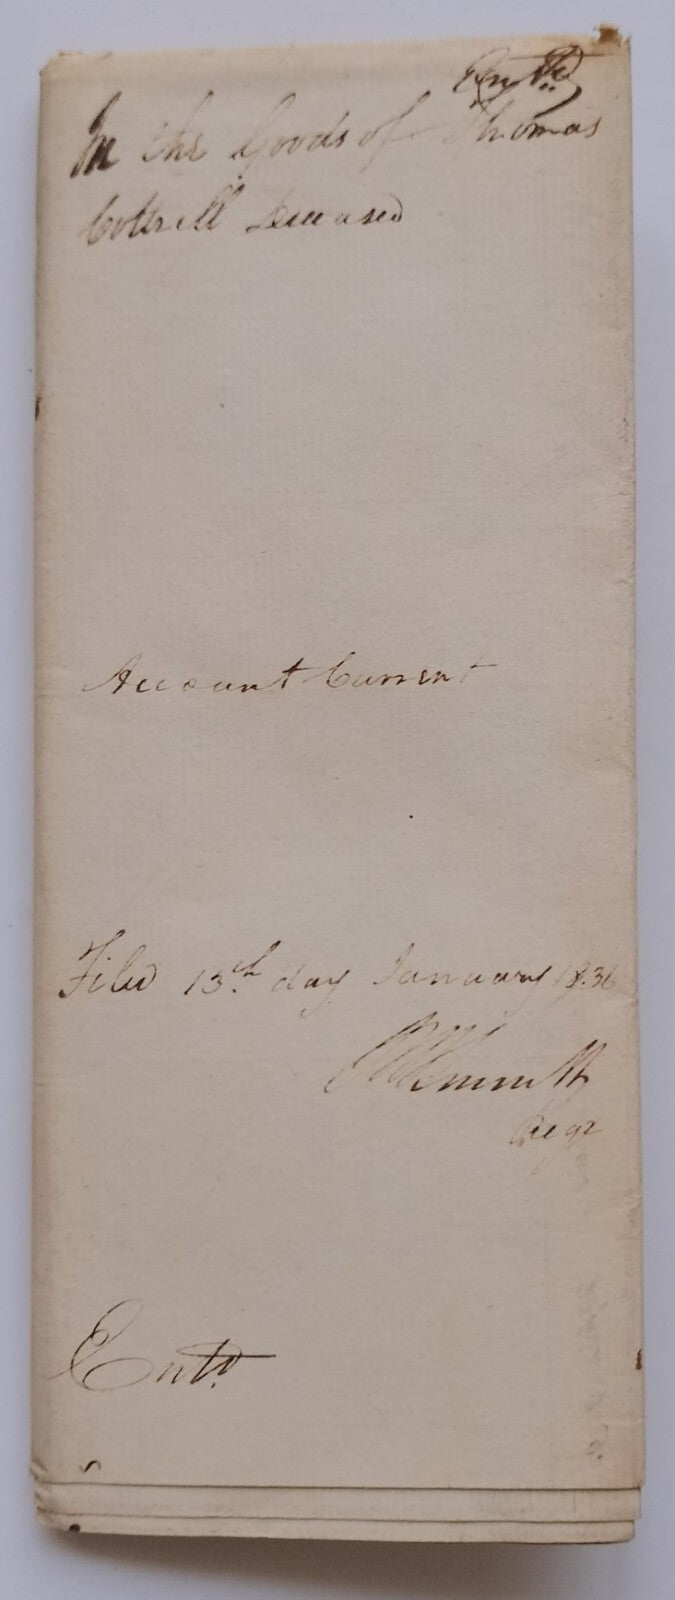 Entd
In the Goods of Thomas
Cottrell Deceased
Account Current
Filed 13th day January 1836
Regr
Entd